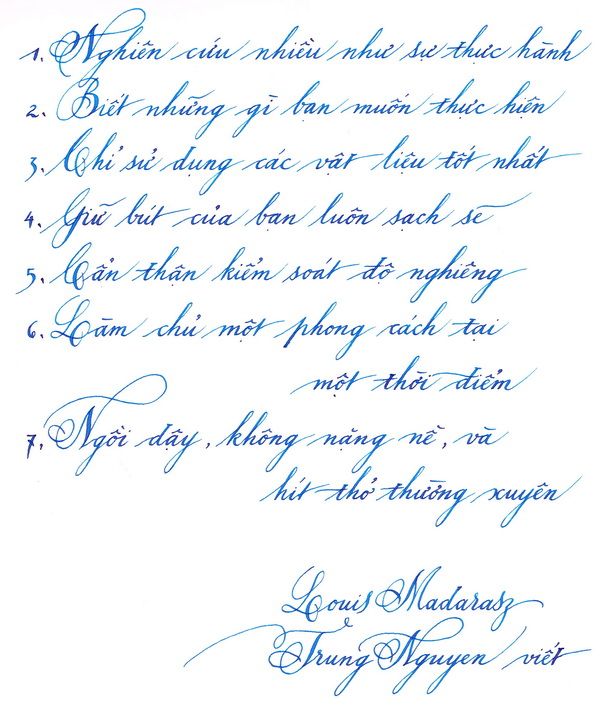 1. Nghiên cứu nhiều như sự thực hành
2. Biết những gì bạn muốn thực hiện
3. Chỉ sử dụng các vật liệu tốt nhất
4. Giữ bút của bạn luôn sạch sẽ
5. Cẩn thận kiểm soát độ nghiêng
6. Làm chủ một phong cách tại
một thời điểm
7. Ngồi dậy, không nặng nề, và
hít thở thường xuyên
Louis Madarasz
Trung Nguyen viết